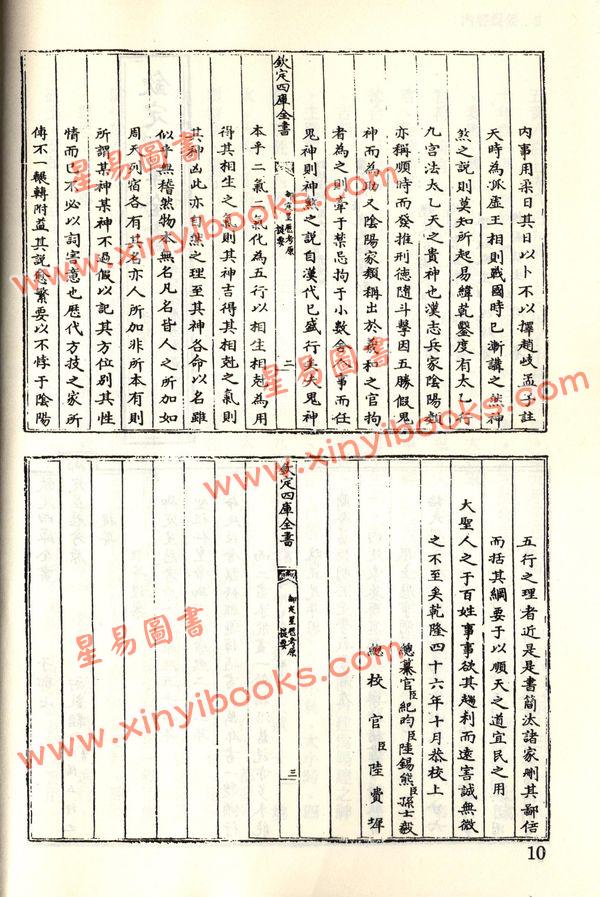 內事用柔日其日以卜不以擇趙岐孟子註
天時為孤虛王相則戰國時已漸講之然神
煞之說則莫知所起易緯乾鑿度有太乙行
九宮法太乙天之貴神也漢志兵家陰陽類
亦稱順時而發推刑德隨斗擊因五勝假鬼
神而為助又陰陽家類稱出於羲和之官拘
者為之則牽于禁忌拘于小數舍人事而任
鬼神則神煞之說自漢代已盛行矣夫鬼神
欽定四庫全書
御定星歷考原
提要
二
本乎二氣二氣化為五行以相生相剋為用
得其相生之氣則其神吉得其相剋之氣則
其神凶此亦自然之理至其神各命以名雖
似乎無稽然物本無名凡名皆人之所加如
周天列宿各有其名亦人所加非所本有則
所謂某神某神不過假以記其方位別其性
情而已不必以詞害意也歷代方技之家所
傳不一輾轉附益其說愈繁要以不悖于陰陽
五行之理者近是是書簡汰諸家刪其鄙倍
而括其綱要于以順天之道宜民之用
大聖人之于百姓事事欲其趨利而遠害誠無微
之不至矣乾隆四十六年十月恭校上
總纂官臣紀昀臣陸錫熊臣孫士毅
總校官臣陸費墀
欽定四庫全書
御定星歷考原
提要
三
10
星易圖書
www.xinyibooks.com
星易圖書
www.xinyibooks.com
星易圖書
www.xinyibooks.com
星易圖書
www.xinyibooks.com